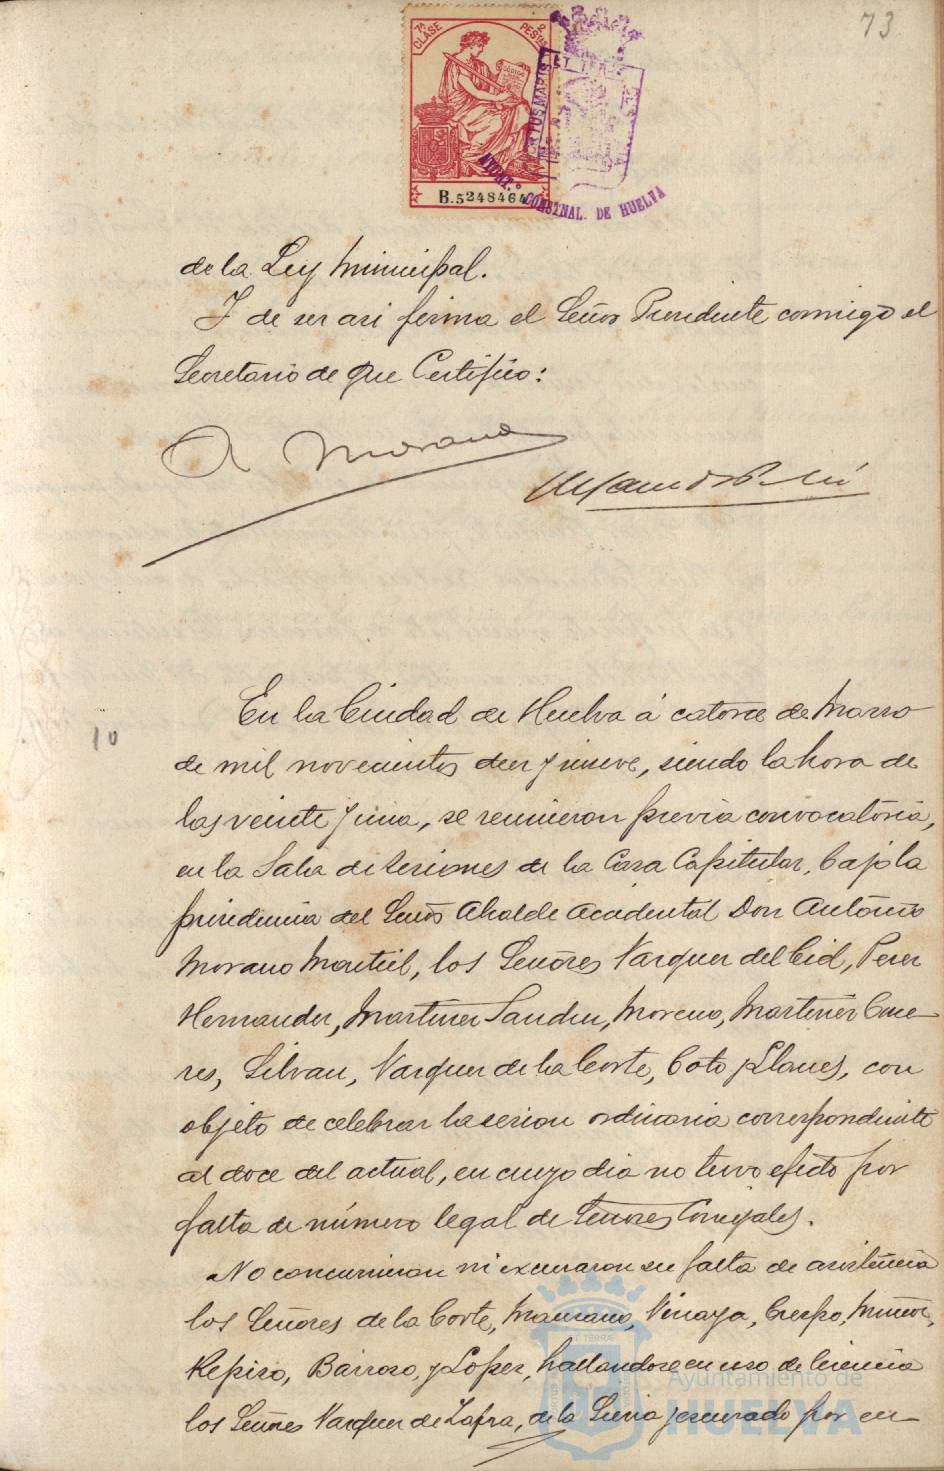 73
7ª CLASE
2 PESTAS
B.5248464
PORTUS MARIS ET TERRAE
AYUNT.º CONSTNAL. DE HUELVA
de la Ley Municipal.
Y de ser asi firma el Señor Presidente conmigo el
Secretario de que Certifico:
A Morano
10
En la Ciudad de Huelva á catorce de Marzo
de mil novecientos diez y nueve, siendo la hora de
las veinte y una, se reunieron previa convocatoria,
en la Sala de Sesiones de la Casa Capitular, bajo la
presidencia del Señor Alcalde Accidental Don Antonio
Morano Montiel, los Señores Vazquez del Cid, Perez
Hernandez, Martinez Sanchez, Moreno, Martinez Cume-
res, Silvan, Vazquez de la Corte, Coto y Llanes, con
objeto de celebrar la sesion ordinaria correspondiente
al doce del actual, en cuyo dia no tuvo efecto por
falta de número legal de Señores Concejales.
No concurrieron ni excusaron su falta de asistencia
los Señores de la Corte, Manzano, Vinaya, Crespo, Muñoz,
Repiso, Barroso, y Lopez, hallandose en uso de licencia
los Señores Vazquez de Zafra, de la Sierra y escusado por en-
Ayuntamiento de
HUELVA